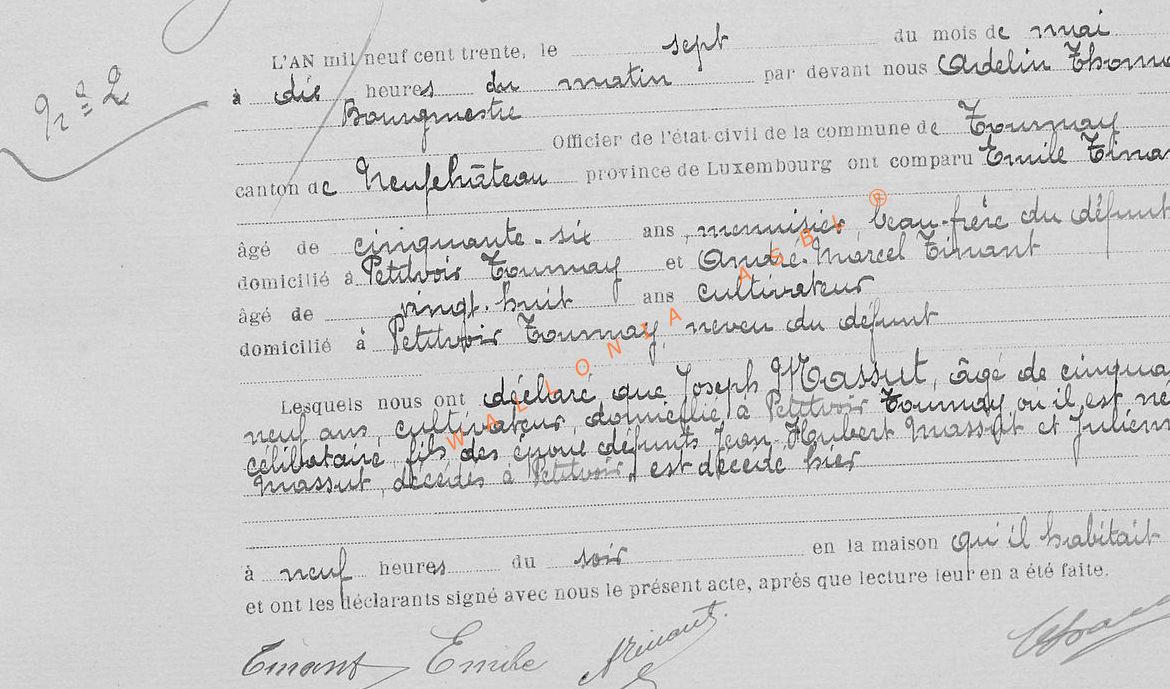 Nº 2
L'AN mil neuf cent trente, le sept du mois de mai
à dix heures du matin par devant nous Adelin Thoma
Bourgmestre
Officier de l'état-civil de la commune de Tournay
canton de Neufchâteau province de Luxembourg ont comparu Emile Tinan
âgé de cinquante-six ans, menuisier, beau-frère du défunt
domicilié à Petitvoir Tournay et André-Marcel Tinant
âgé de vingt-huit ans cultivateur
domicilié à Petitvoir Tournay, neveu du défunt
Lesquels nous ont déclaré que Joseph Massut, âgé de cinqua
neuf ans, cultivateur, domicilié à Petitvoir Tournay où il est né
célibataire, fils des époux défunts Jean-Hubert Massut et Julienn
Massut, décédés à Petitvoir, est décédé hier
à neuf heures du soir en la maison qu'il habitait
et ont les déclarants signé avec nous le présent acte, après que lecture leur en a été faite.
Tinant Emile ATinant.
WALLONIA ASBL ®